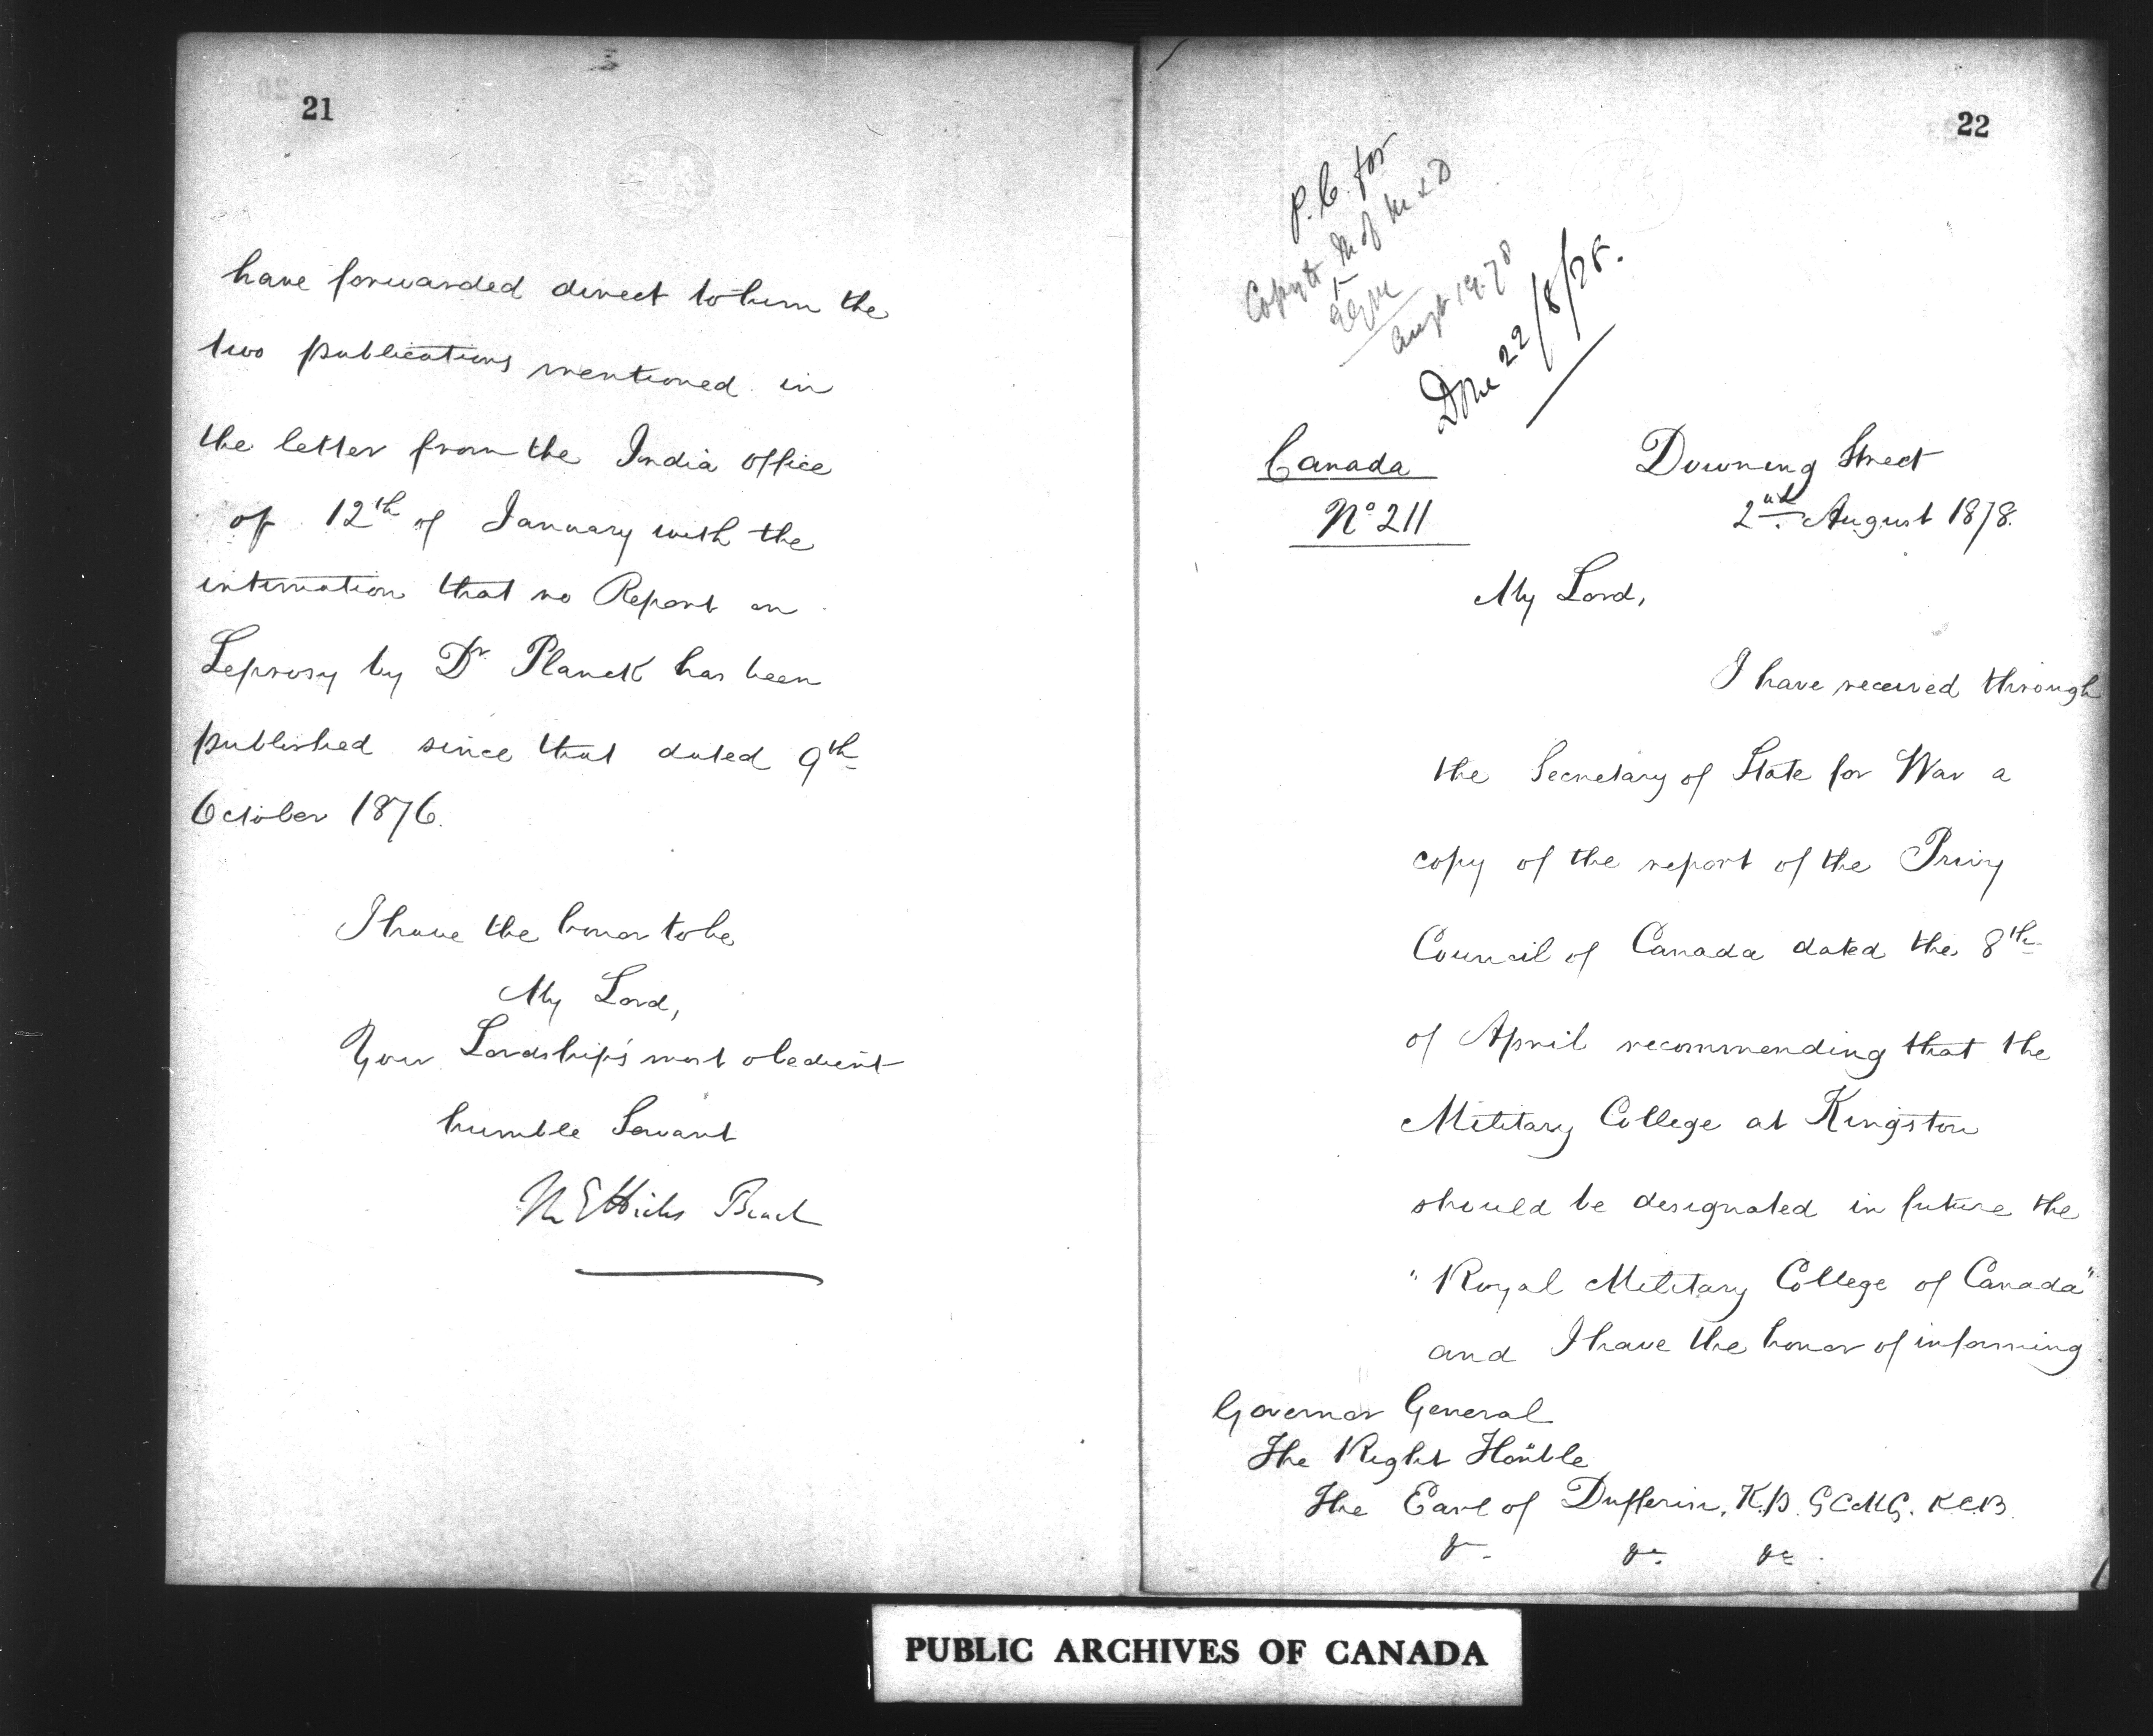 21
have forwarded direct to him the
two publications mentioned in
the letter from the India Office
of 12th of January with the
intimation that no Report on
Leprosy by Dr. Planck has been
published since that dated 9th
October 1876.
I have the honor to be
My Lord,
Your Lordship's most obedient
humble Servant
M E Hicks Beach
22
P.C. for
Copy to M of M & D
Augt 19. 78
Done 22/8/78.
Canada
No 211
Downing Street
2nd. August 1878.
My Lord,
I have received through
the Secretary of State for War a
copy of the report of the Privy
Council of Canada dated the 8th
of April recommending that the
Military College at Kingston
should be designated in future the
"Royal Military College of Canada"
and I have the honor of informing
Governor General
The Right Honble
The Earl of Dufferin, K.P. GCMG. KCB.
&c. &c. &c.
PUBLIC ARCHIVES OF CANADA